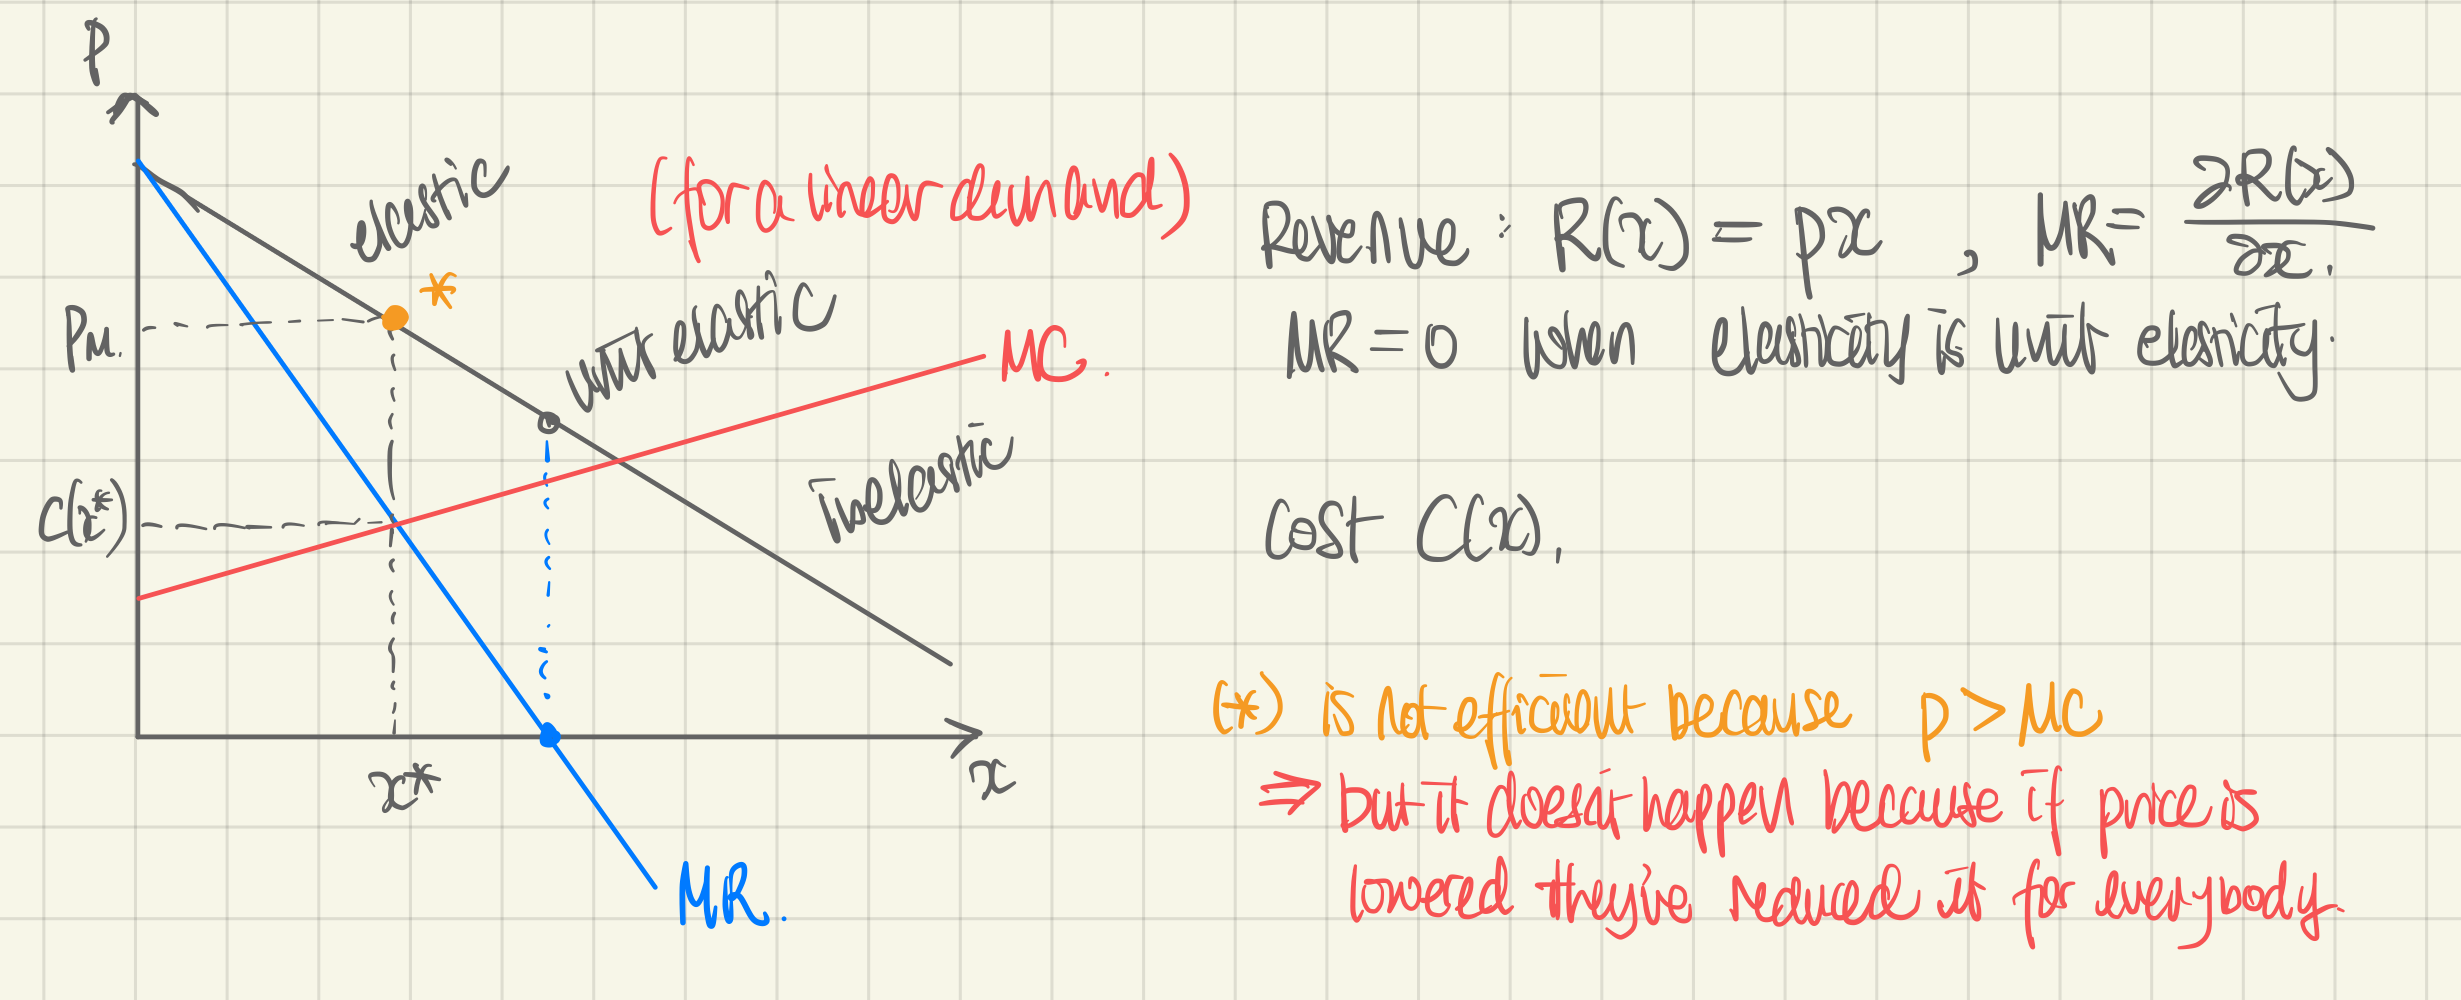 P
elastic
(for a linear demand)
*
unit elastic
PM.
MC.
inelastic
C(x*)
x*
x
MR.
Revenue : R(x) = px , MR = ∂R(x)/∂x.
MR = 0 when elasticity is unit elasticity.
Cost C(x),
(*) is not efficient because p > MC
⇒ but it doesn't happen because if price is
lowered they've reduced it for everybody.